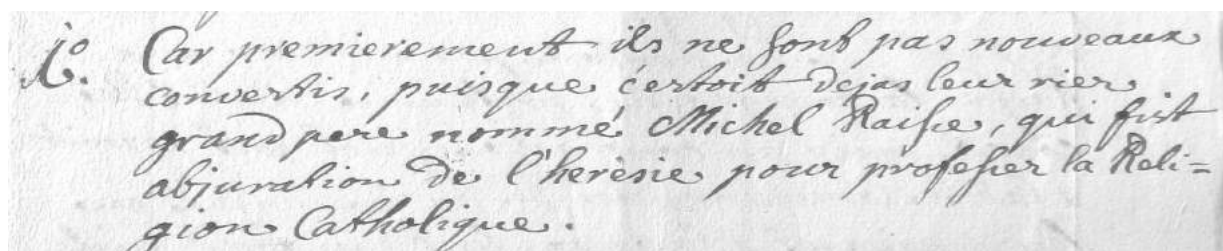 1.° Car premierement ils ne sont pas nouveaux
convertis, puisque c'estoit dejas leur rier
grand pere nommé Michel Raisse, qui fist
abjuration de l'heresie pour professer la Reli=
gion Catholique.